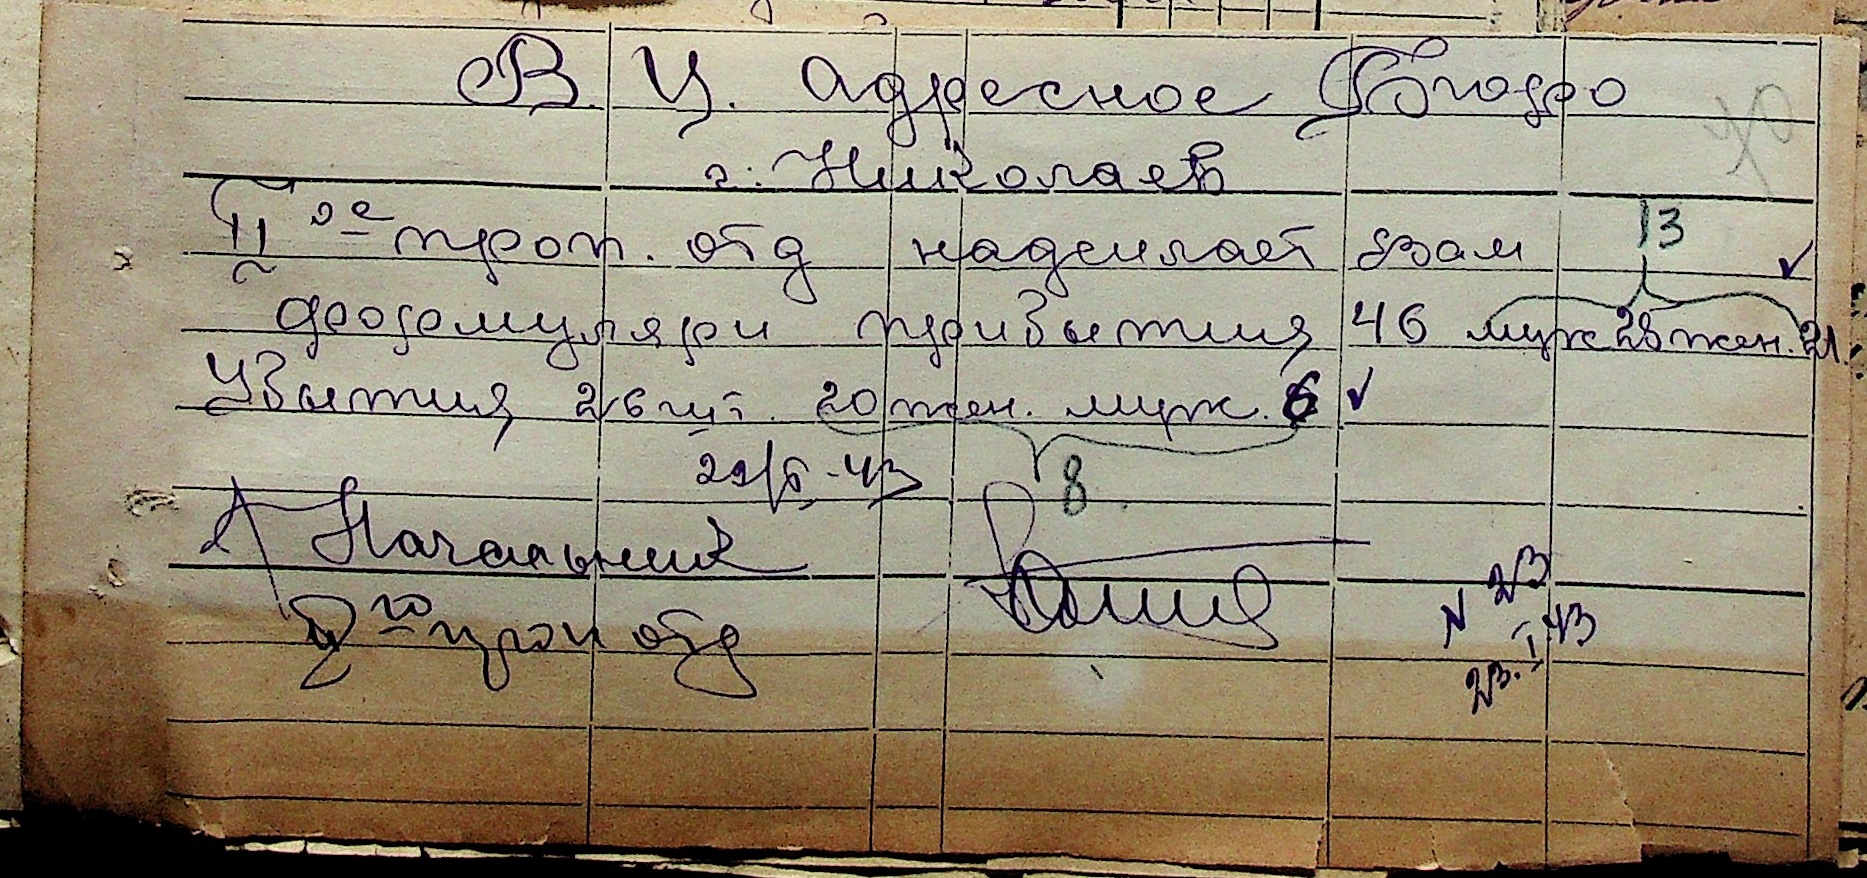 В Ц. адресное Бюро
г. Николаев
II ое проп. отд надсилает вам
13
формуляри прибытия 46 муж 28 жен. 21
Убытия 26 шт. 20 жен. муж. 6
8
Начальник
2го проп отд
N 23
23. I 43